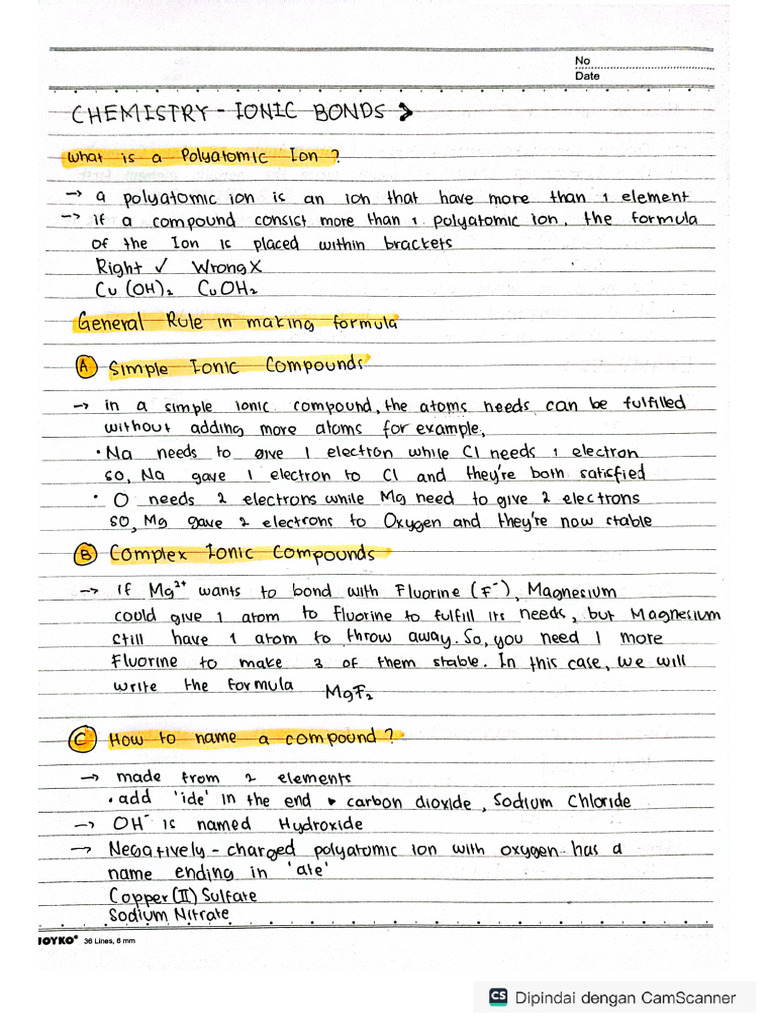 No
Date
CHEMISTRY - IONIC BONDS >
What is a Polyatomic Ion?
→ a polyatomic ion is an ion that have more than 1 element
→ if a compound consist more than 1 polyatomic ion, the formula
of the Ion is placed within brackets
Right ✓ Wrong X
Cu (OH)₂ CuOH₂
General Rule in making formula
A Simple Ionic Compounds
→ in a simple ionic compound, the atoms needs can be fulfilled
without adding more atoms for example,
• Na needs to give 1 electron while Cl needs 1 electron
so, Na gave 1 electron to Cl and they're both satisfied
• O needs 2 electrons while Mg need to give 2 electrons
so, Mg gave 2 electrons to Oxygen and they're now stable
B Complex Ionic Compounds
→ if Mg²⁺ wants to bond with Fluorine (F⁻), Magnesium
could give 1 atom to fluorine to fulfill its needs, but Magnesium
still have 1 atom to throw away. So, you need 1 more
Fluorine to make 3 of them stable. In this case, we will
write the formula MgF₂
C How to name a compound?
→ made from 2 elements
• add 'ide' in the end ▸ carbon dioxide, Sodium Chloride
→ OH⁻ is named Hydroxide
→ Negatively-charged polyatomic ion with oxygen has a
name ending in 'ate'
Copper (II) Sulfate
Sodium Nitrate
JOYKO® 36 Lines, 6 mm
CS Dipindai dengan CamScanner